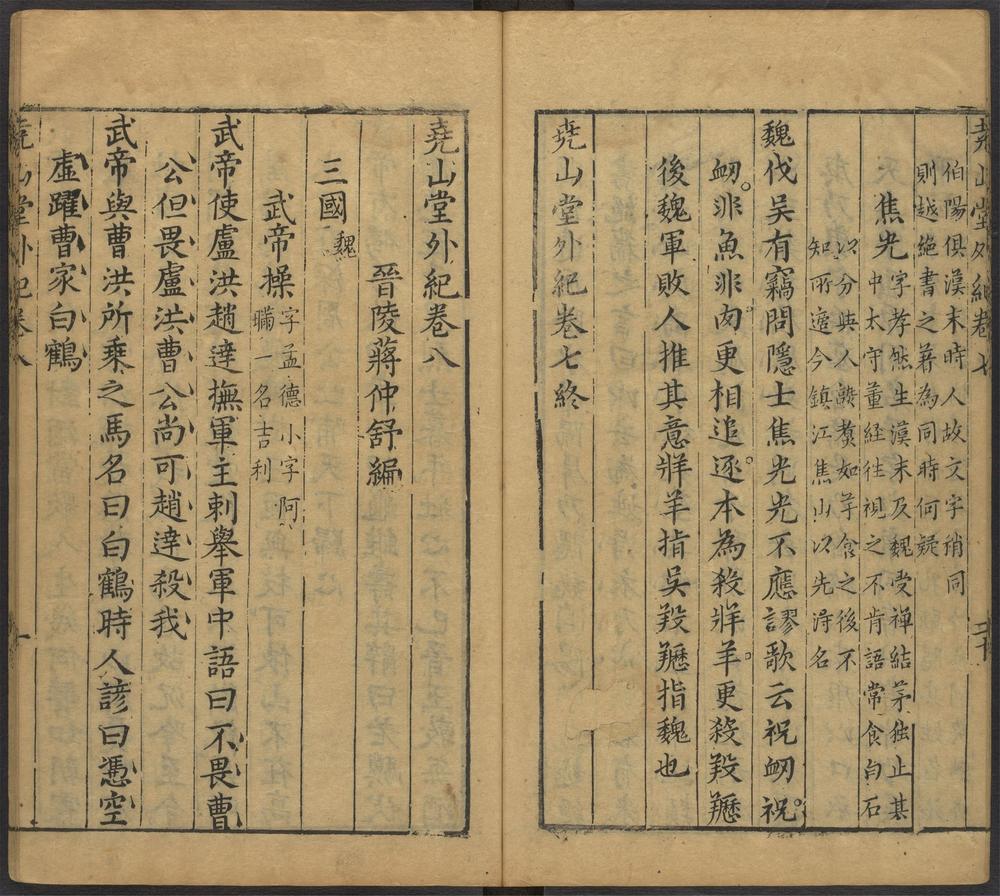 堯山堂外紀卷七
二十
伯陽俱漢末時人故文字稍同
則越絕書之著為同時何疑
焦光
字孝然生漢末及魏受禪結茅独止其
中太守董経往視之不肯語常食白石
以分與人𩜾煑如芋食之後不
知所適今鎮江焦山以先得名
魏伐吴有竊問隱士焦光光不應謬歌云祝衂祝
衂非魚非肉更相追逐本為殺牂羊更殺羖䍽
後魏軍敗人推其意牂羊指吴羖䍽指魏也
堯山堂外紀卷七終
堯山堂外紀卷八
晉陵蔣仲舒編
三國
魏
武帝操
字孟德小字阿
瞞一名吉利
武帝使盧洪趙達撫軍主刺舉軍中語曰不畏曹
公但畏盧洪曹公尚可趙達殺我
武帝與曹洪所乘之馬名曰白鶴時人諺曰憑空
虛躍曹家白鶴
堯山堂外紀卷八
一